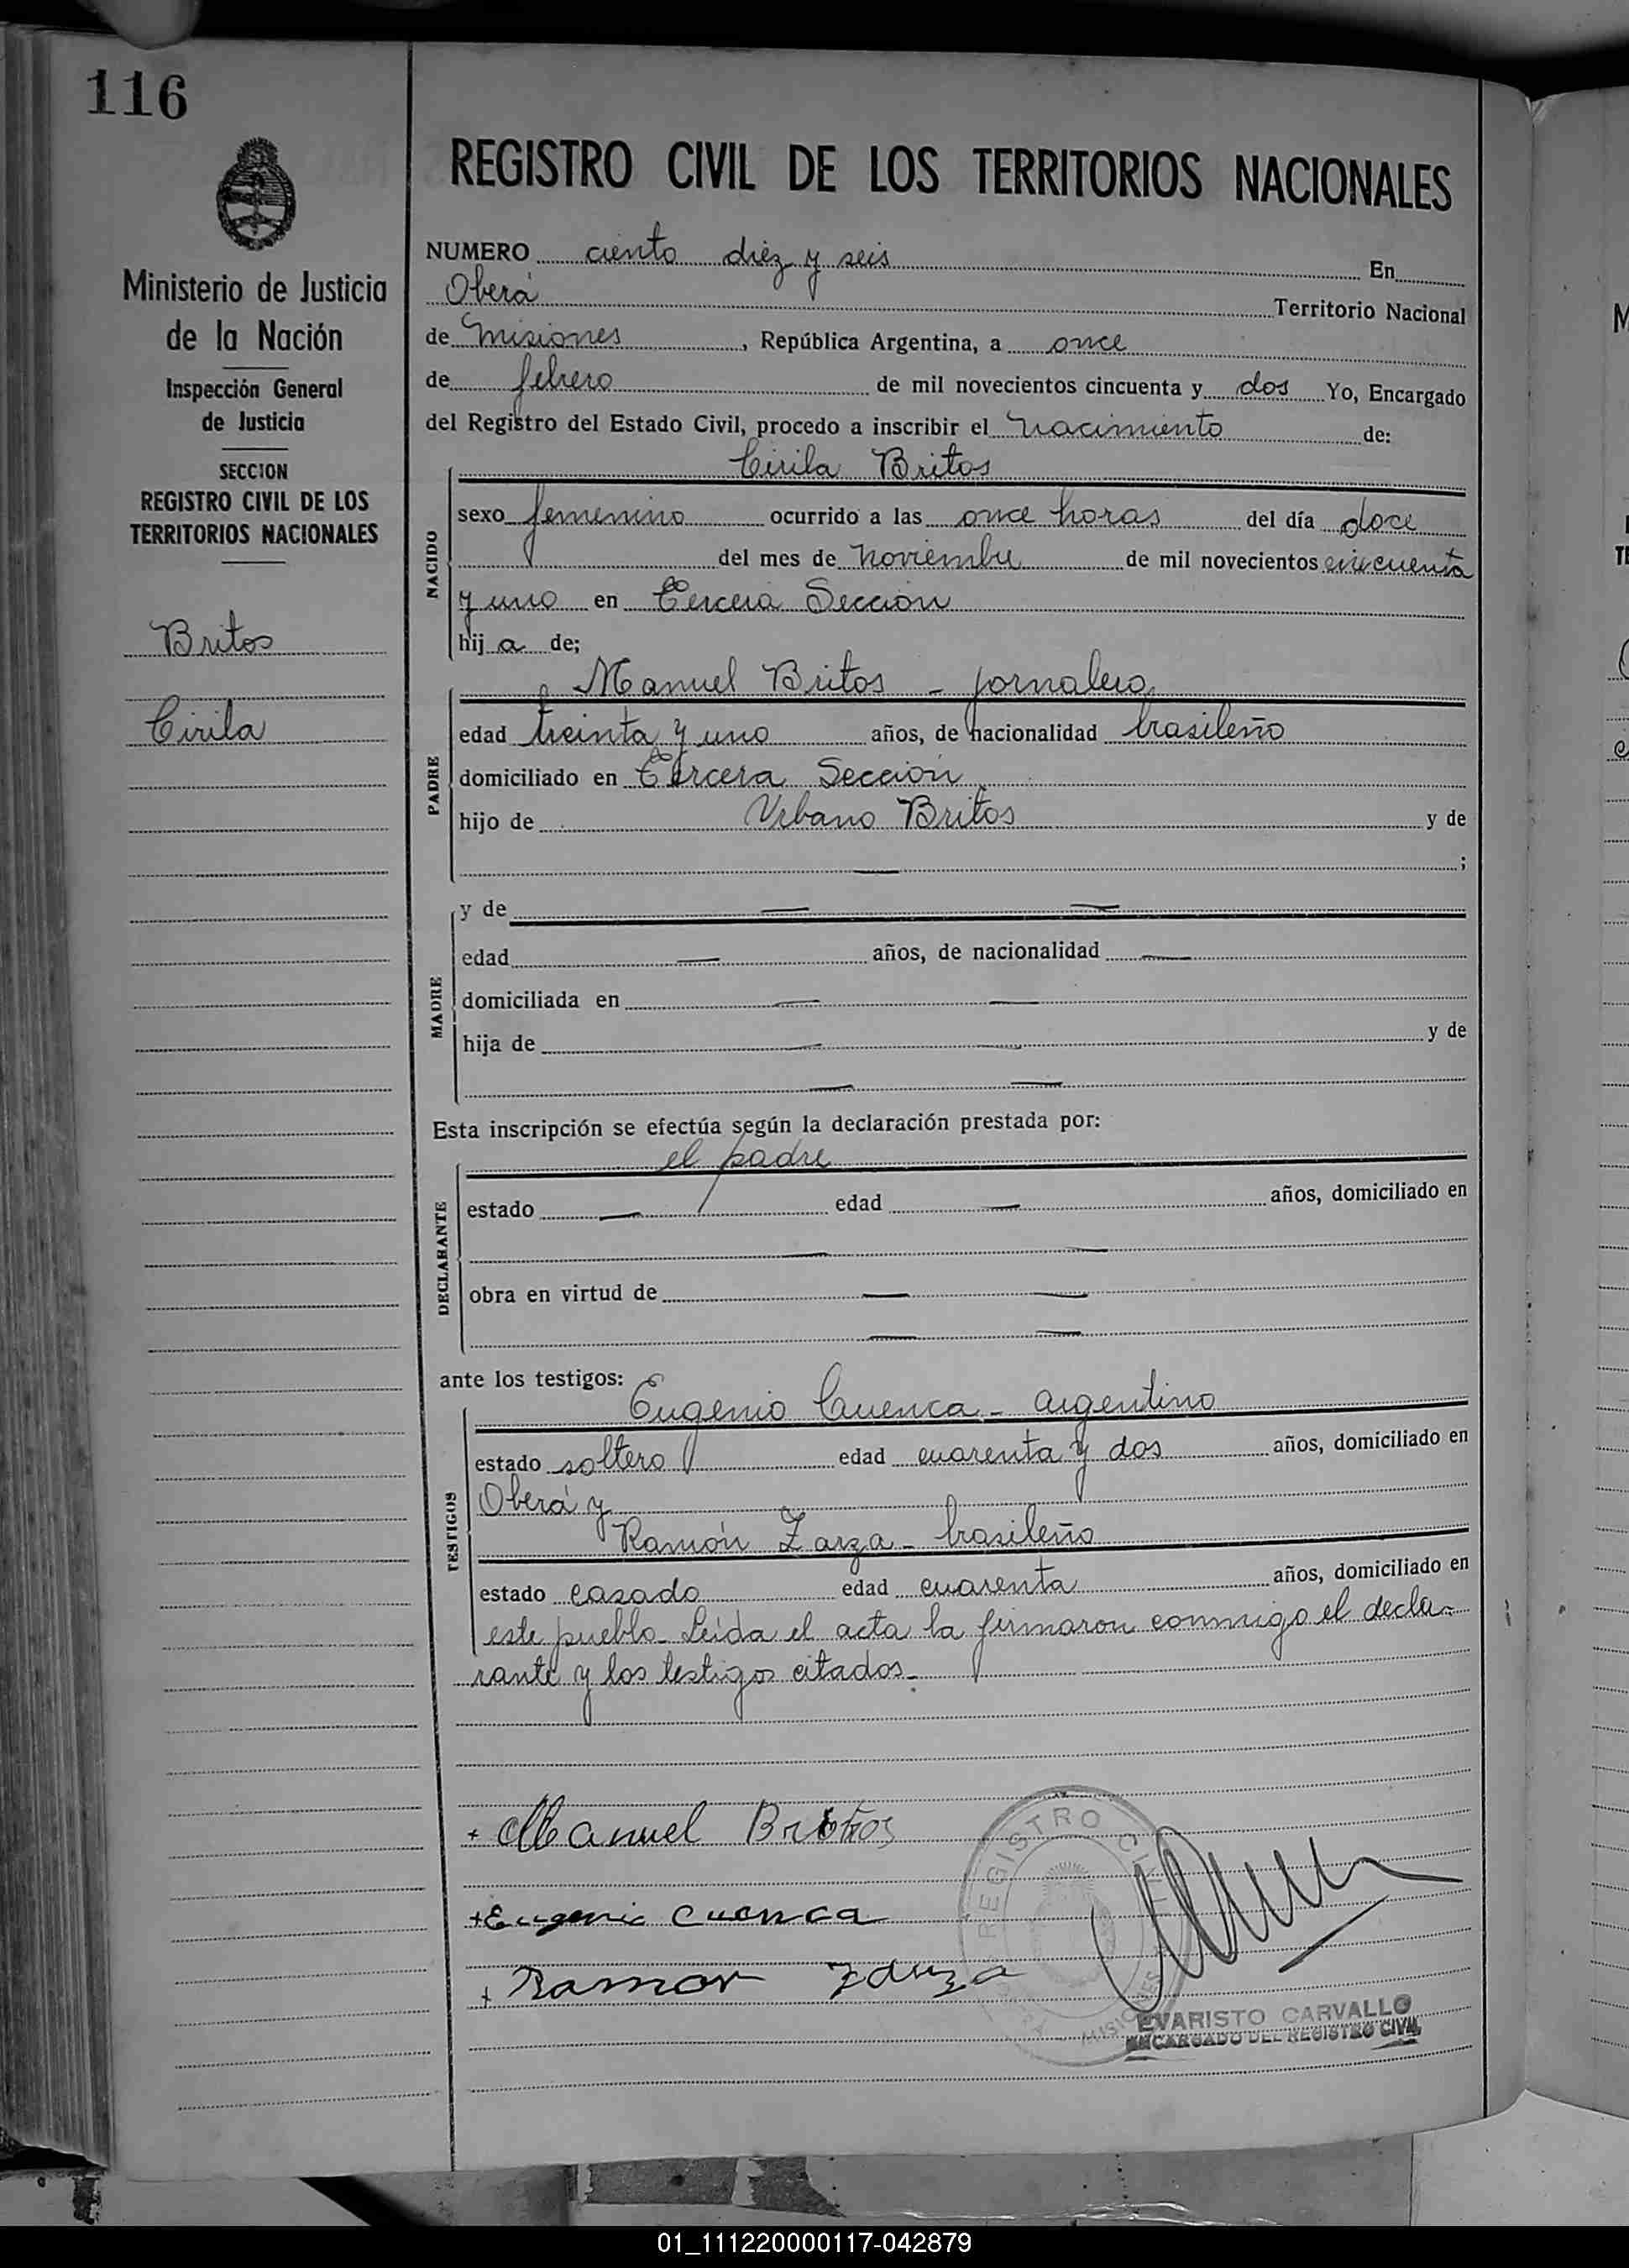 116
REGISTRO CIVIL DE LOS TERRITORIOS NACIONALES
Ministerio de Justicia
de la Nación
Inspección General
de Justicia
SECCION
REGISTRO CIVIL DE LOS
TERRITORIOS NACIONALES
Britos
Cirila
NUMERO ciento diéz y seis En
Oberá Territorio Nacional
de Misiones, República Argentina, a once
de febrero de mil novecientos cincuenta y dos Yo, Encargado
del Registro del Estado Civil, procedo a inscribir el nacimiento de:
Cirila Britos
NACIDO
sexo femenino ocurrido a las once horas del día doce
del mes de noviembre de mil novecientos cincuenta
y uno en Tercera Sección
hij a de;
Manuel Britos - jornalero
PADRE
edad treinta y uno años, de nacionalidad brasileño
domiciliado en Tercera Sección
hijo de Urbano Britos y de
— ;
MADRE
y de — —
edad — años, de nacionalidad —
domiciliada en — —
hija de — — y de
— —
Esta inscripción se efectúa según la declaración prestada por:
el padre
DECLARANTE
estado — edad — años, domiciliado en
— —
obra en virtud de — —
— —
ante los testigos:
Eugenio Cuenca - argentino
TESTIGOS
estado soltero edad cuarenta y dos años, domiciliado en
Oberá y
Ramón Zarza - brasileño
estado casado edad cuarenta años, domiciliado en
este pueblo - Leída el acta la firmaron conmigo el decla-
rante y los testigos citados -
+ Manuel Britos
+ Eugenio Cuenca
+ Ramon Zarza
REGISTRO CIVIL
MISIONES
EVARISTO CARVALLO
ENCARGADO DEL REGISTRO CIVIL
01_111220000117-042879